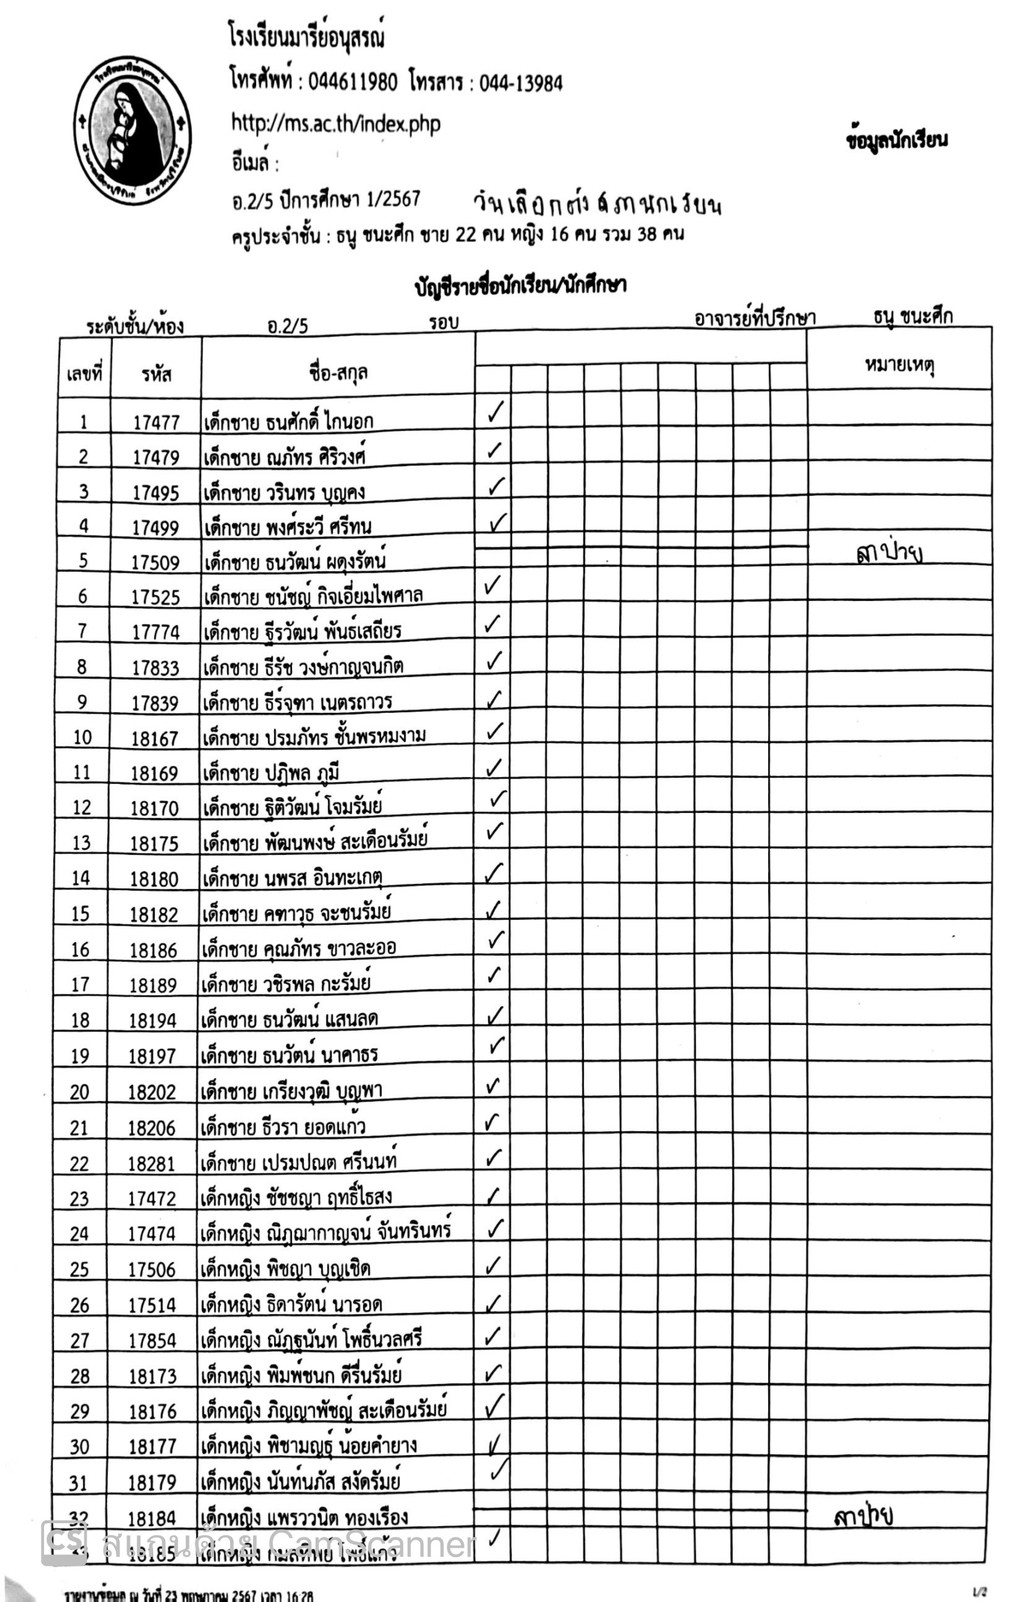 โรงเรียนมารีย์อนุสรณ์
โทรศัพท์ : 044611980 โทรสาร : 044-13984
http://ms.ac.th/index.php
ข้อมูลนักเรียน
อีเมล์ :
อ.2/5 ปีการศึกษา 1/2567 วันเลือกตั้งสภานักเรียน
ครูประจำชั้น : ธนู ชนะศึก ชาย 22 คน หญิง 16 คน รวม 38 คน
บัญชีรายชื่อนักเรียน/นักศึกษา
ระดับชั้น/ห้อง อ.2/5 รอบ อาจารย์ที่ปรึกษา ธนู ชนะศึก
เลขที่ รหัส ชื่อ-สกุล หมายเหตุ
1 17477 เด็กชาย ธนศักดิ์ ไกนอก ✓
2 17479 เด็กชาย ณภัทร ศิริวงศ์ ✓
3 17495 เด็กชาย วรินทร บุญคง ✓
4 17499 เด็กชาย พงศ์ระวี ศรีทน ✓
5 17509 เด็กชาย ธนวัฒน์ ผดุงรัตน์ ลาป่วย
6 17525 เด็กชาย ชนัชญ์ กิจเอี่ยมไพศาล ✓
7 17774 เด็กชาย ฐีรวัฒน์ พันธ์เสถียร ✓
8 17833 เด็กชาย ธีรัช วงษ์กาญจนกิต ✓
9 17839 เด็กชาย ธีร์จุฑา เนตรถาวร ✓
10 18167 เด็กชาย ปรมภัทร ชั้นพรหมงาม ✓
11 18169 เด็กชาย ปฏิพล ภูมี ✓
12 18170 เด็กชาย ฐิติวัฒน์ โจมรัมย์ ✓
13 18175 เด็กชาย พัฒนพงษ์ สะเดือนรัมย์ ✓
14 18180 เด็กชาย นพรส อินทะเกตุ ✓
15 18182 เด็กชาย คฑาวุธ จะชนรัมย์ ✓
16 18186 เด็กชาย คุณภัทร ขาวละออ ✓
17 18189 เด็กชาย วชิรพล กะรัมย์ ✓
18 18194 เด็กชาย ธนวัฒน์ แสนลด ✓
19 18197 เด็กชาย ธนวัตน์ นาคาธร ✓
20 18202 เด็กชาย เกรียงวุฒิ บุญพา ✓
21 18206 เด็กชาย ธีวรา ยอดแก้ว ✓
22 18281 เด็กชาย เปรมปณต ศรีนนท์ ✓
23 17472 เด็กหญิง ชัชชญา ฤทธิ์ไธสง ✓
24 17474 เด็กหญิง ณิฎฌากาญจน์ จันทรินทร์ ✓
25 17506 เด็กหญิง พิชญา บุญเชิด ✓
26 17514 เด็กหญิง ธิดารัตน์ นารอด ✓
27 17854 เด็กหญิง ณัฏฐนันท์ โพธิ์นวลศรี ✓
28 18173 เด็กหญิง พิมพ์ชนก ดีรื่นรัมย์ ✓
29 18176 เด็กหญิง ภิญญาพัชญ์ สะเดือนรัมย์ ✓
30 18177 เด็กหญิง พิชามญธุ์ น้อยคำยาง ✓
31 18179 เด็กหญิง นันท์นภัส สงัดรัมย์ ✓
32 18184 เด็กหญิง แพรววนิต ทองเรือง ลาป่วย
33 18185 เด็กหญิง กมลทิพย์ โพธิ์แก้ว ✓
CS สแกนด้วย CamScanner
รายงานข้อมูล ณ วันที่ 23 พฤษภาคม 2567 เวลา 16:28
1/2